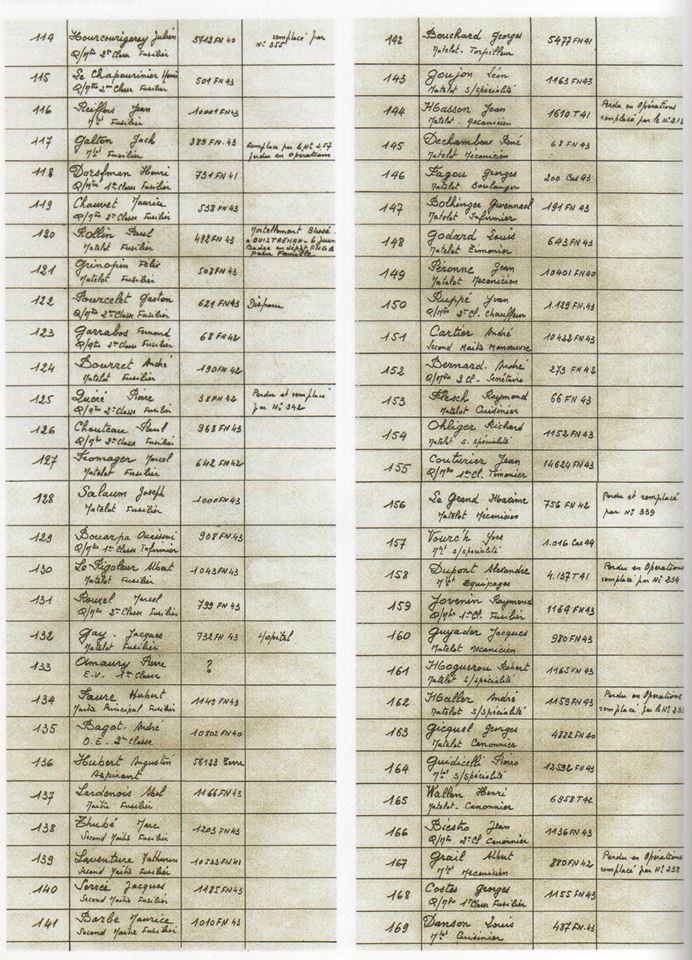 114 Hourcourigaray Julien 3712 FN 40 remplacé par
Q/Mtre 2e Classe Fusilier N° 355
115 Le Chaponnier Henri 501 FN 43
Q/Mtre 2e Classe Fusilier
116 Reiffers Jean 10001 FN 43
Mlot Fusilier
117 Galton Jack 389 FN. 43 Remplacé par le N° 157
Mlot Fusilier perdu en Operations
118 Dorfsman Henri 731 FN 41
Q/Mtre 1e Classe Fusilier
119 Chauvet Maurice 538 FN 43
Q/Mtre 2e Classe Fusilier
120 Rollin Paul 492 FN 43 Mortellement Blessé
Matelot Fusilier a OUISTREHAM - 6 Juin
pour Famille
121 Grinopin Felix 508 FN 43
Matelot Fusilier
122 Pourcelet Gaston 621 FN 43 Disparu
Q/Mtre 2e Classe Fusilier
123 Garrabos Fernand 68 FN 42
Q/Mtre 2e Classe Fusilier
124 Bourret André 190 FN 42
Matelot Fusilier
125 Quéré Pierre 38 FN 42 Perdu et remplacé
Q/Mtre 2e Classe Fusilier par N° 342
126 Chouteau Paul 968 FN 43
Q/Mtre 2e Classe Fusilier
127 Fromager Marcel 642 FN 42
Matelot Fusilier
128 Salaum Joseph 1000 FN 43
Matelot Fusilier
129 Bouarfa Ouissini 908 FN 43
Q/Mtre 1e Classe Infirmier
130 Le Rigoleur Albert 1043 FN 43
Matelot Fusilier
131 Rouxel Marcel 799 FN 43
Q/Mtre 2e Classe Fusilier
132 Gay. Jacques 732 FN 43 Hopital
Matelot Fusilier
133 Amaury Pierre ?
E.V. 1e Classe
134 Faure Hubert 1149 FN 43
Maitre Principal Fusilier
135 Bagot. André 10802 FN 40
O.E. 2e Classe
136 Hubert Augustin 56123 Terre
Aspirant
137 Lardenois Abel 1166 FN 43
Maitre Fusilier
138 Thubé Marc 1203 FN 43
Second Maitre Fusilier
139 Laventure Mathurin 10533 FN 41
Second Maitre Fusilier
140 Serrée Jacques 1185 FN 43
Second Maitre Fusilier
141 Barbe Maurice 1010 FN 43
Second Maitre Fusilier
142 Bouchard Georges 5477 FN 41
Matelot. Torpilleur
143 Goujon Léon 1163 FN 43
Matelot S/spécialité
144 Masson Jean 1610 T 41 Perdu en Opérations
Matelot. Mécanicien remplacé par le N° 213
145 Dechambeu René 68 FN 43
Matelot Mecanicien
146 Fagou Georges 200 Cas 43
Matelot Boulanger
147 Bolhinger Gwennael 191 FN 43
Matelot Infirmier
148 Godard Louis 643 FN 43
Matelot Timonier
149 Péronne Jean 10401 FN 40
Matelot Mecanicien
150 Ruppé Yvan 1.129 FN. 43
Q/Mtre 2e Cl. Chauffeur
151 Cartier André 10422 FN 43
Second Maitre Manoeuvre
152 Bernard. André 273 FN 42
Q/Mtre 2 Cl. Secrétaire
153 Flesch Raymond 66 FN 43
Matelot Cuisinier
154 Ohliger Richard 1152 FN 43
Matelot S. Spécialité
155 Couturier Jean 14624 FN 43
Q/Mtre 1e Cl. Timonier
156 Le Grand Maxime 756 FN 42 Perdu et remplacé
Matelot Mécanicien par N° 339
157 Vourc'h Yves 1.016 Cas 44
Mlot S/spécialité
158 Dupont Alexandre 4.137 T 41 Perdu en Operations
Mlot Equipages remplacé par N° 234
159 Jovenin Raymond 1164 FN 43
Q/Mtre 1e Cl. Fusilier
160 Guyader Jacques 980 FN 43
Matelot Mecanicien
161 Hoguerou Robert 1165 FN 43
Matelot S/spécialité
162 Haller André 1159 FN 43 Perdu en Operations
Matelot S/Spécialité remplacé par le N° 232
163 Gicquel Georges 4822 FN 40
Matelot Canonnier
164 Guidicelli Pierro 12592 FN 43
Mlot S/spécialité
165 Wallen Henri 6958 T 42
Matelot. Canonnier
166 Bicstro Jean 1136 FN 43
Q/Mtre 2e Cl Canonnier
167 Grail Albert 880 FN 42 Perdu en Operations
Mlot Mecanicien remplacé par N° 238
168 Costes Georges 1155 FN 43
Q/Mtre 1e Classe Fusilier
169 Danson Louis 487 FN. 43
Mlot Cuisinier